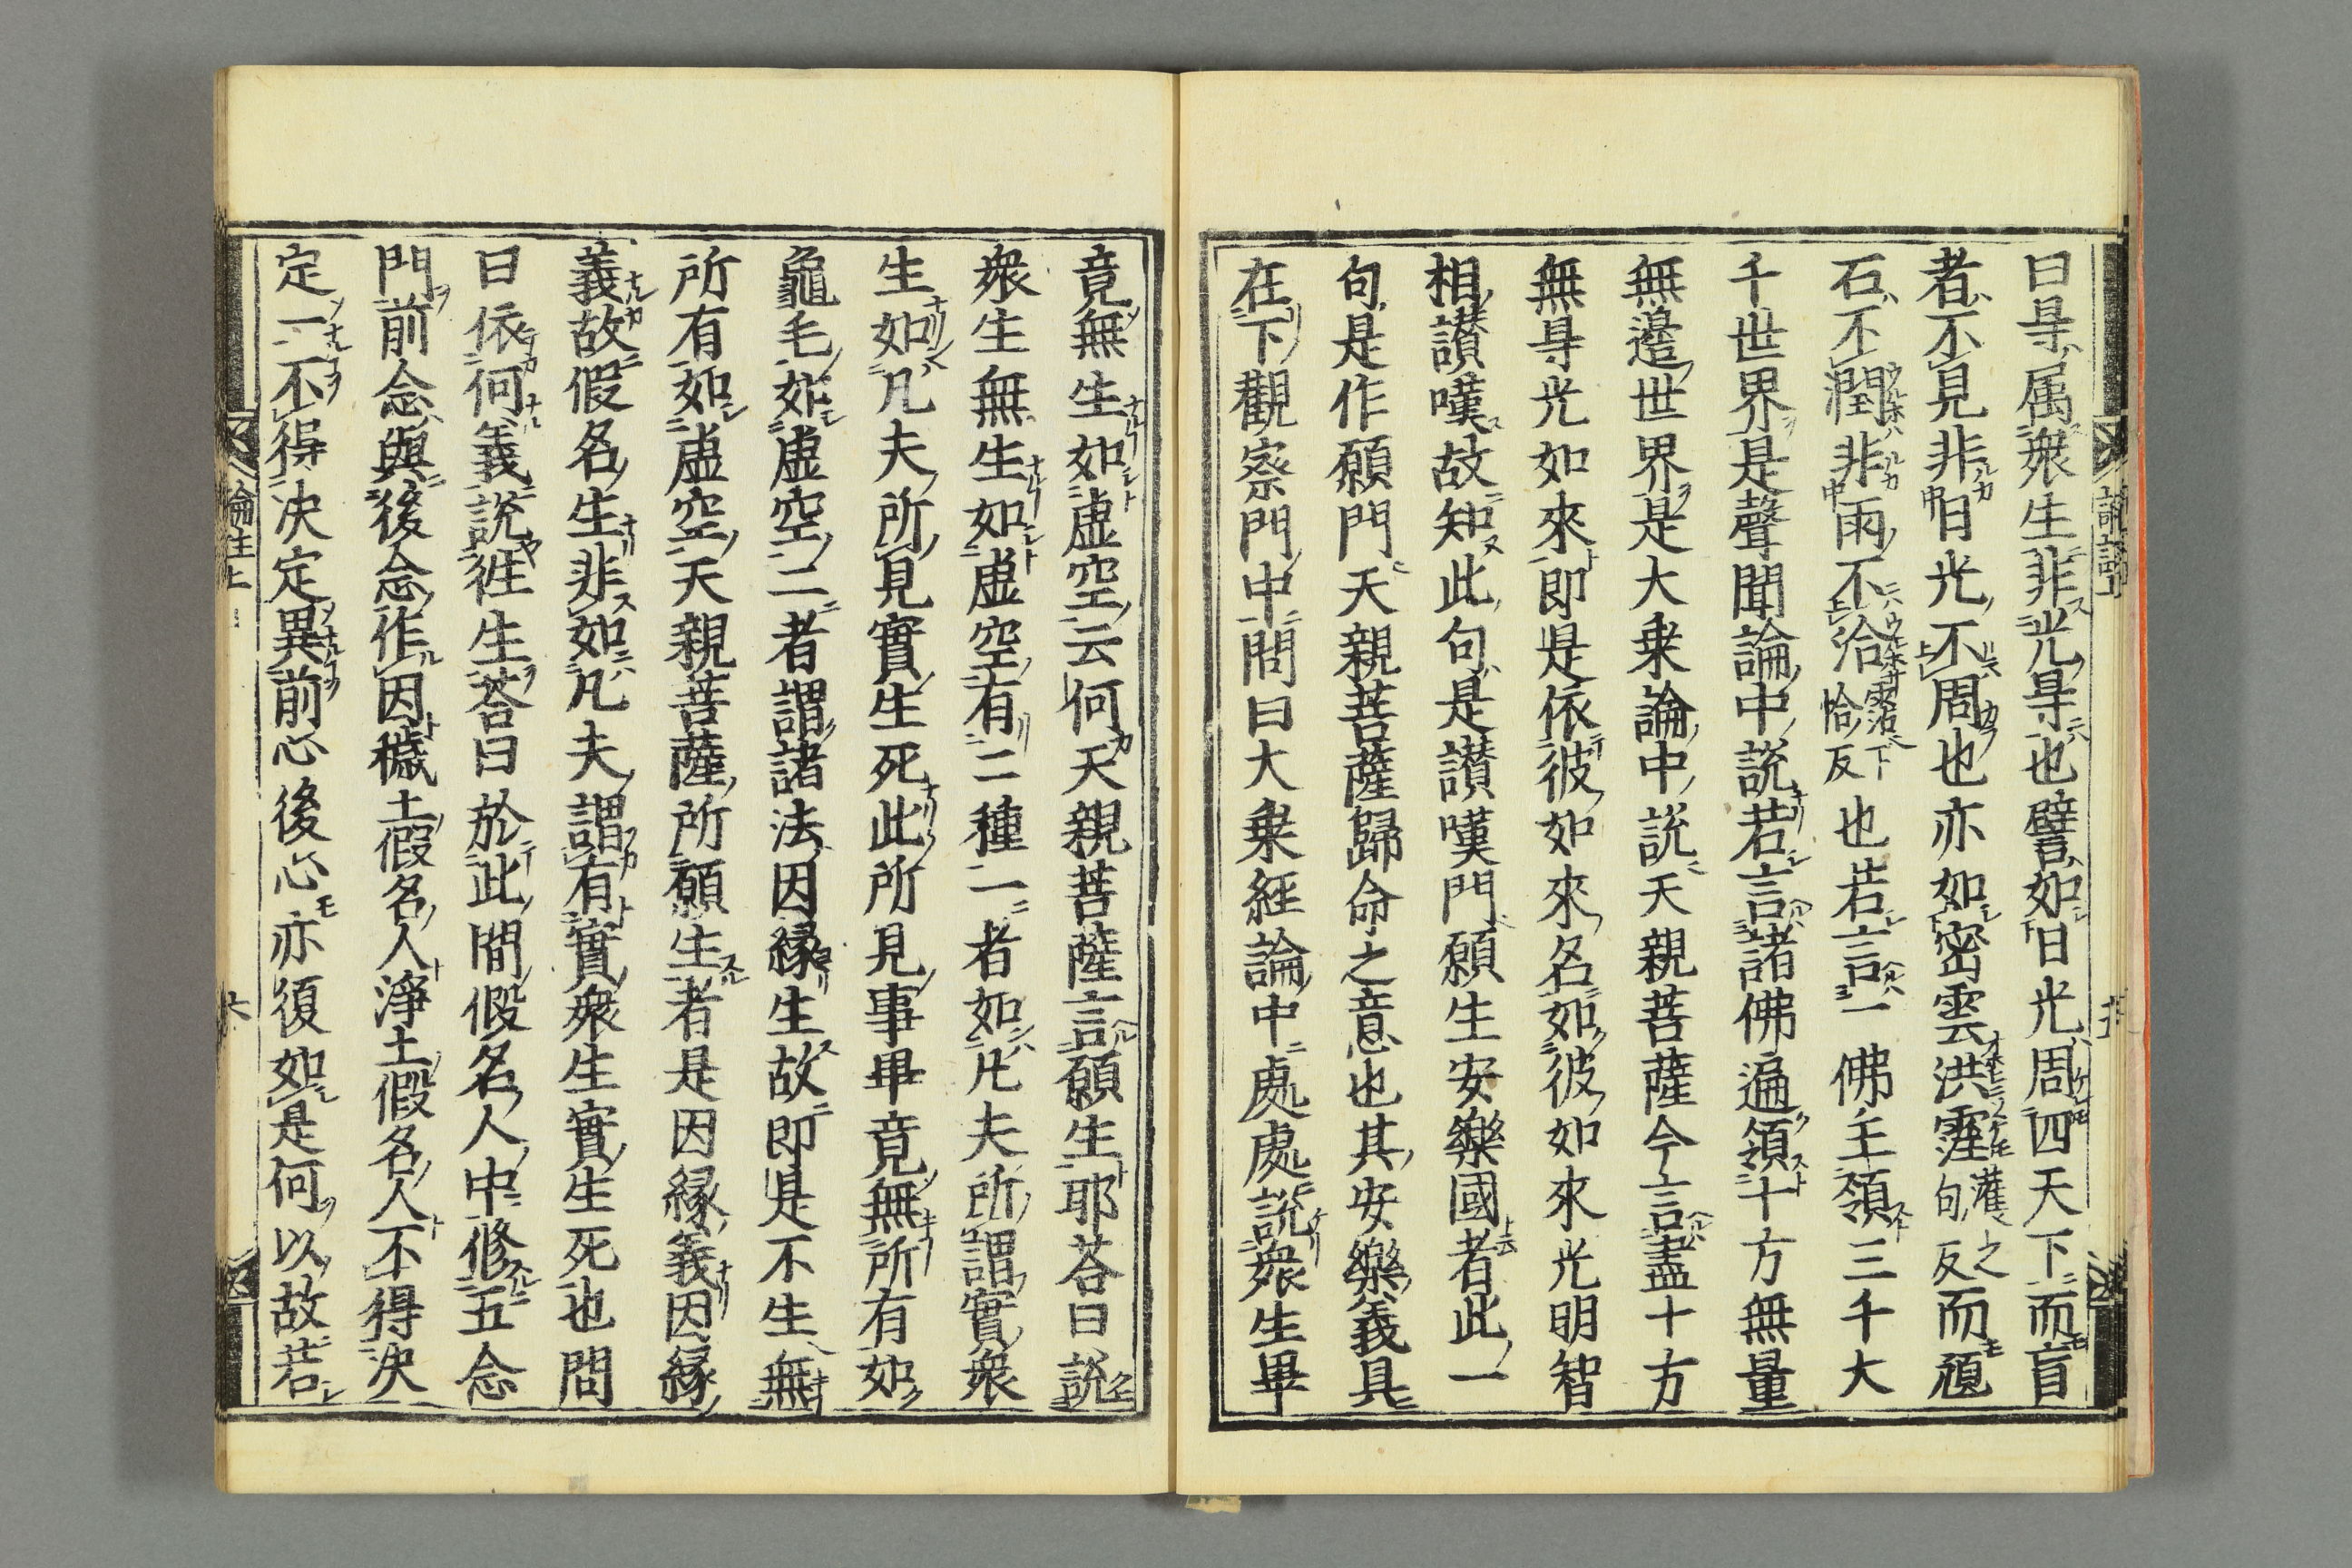 曰㝵属衆生非光㝵也譬如日光周四天下而盲
者不見非日光不周也亦如密雲洪霔灌之句反而頑
石不潤非雨不洽霑洽下恰反也若言一佛主領三千大
千世界是聲聞論中說若言諸佛遍領十方無量
無邉世界是大乗論中說天親菩薩今言盡十方
無㝵光如來即是依彼如來名如彼如來光明智
相讃嘆故知此句是讃嘆門願生安樂國者此一
句是作願門天親菩薩歸命之意也其安樂義具
在下觀察門中問曰大乗経論中處處說衆生畢
竟無生如虚空云何天親菩薩言願生耶荅曰說
衆生無生如虚空有二種一者如凡夫所謂實衆
生如凡夫所見實生死此所見事畢竟無所有如
龜毛如虚空二者謂諸法因縁生故即是不生無
所有如虚空天親菩薩所願生者是因縁義因縁
義故假名生非如凡夫謂有實衆生實生死也問
曰依何義說徃生荅曰於此間假名人中修五念
門前念與後念作因穢土假名人淨土假名人不得决
定一不得决定異前心後心亦復如是何以故若
論註上
六